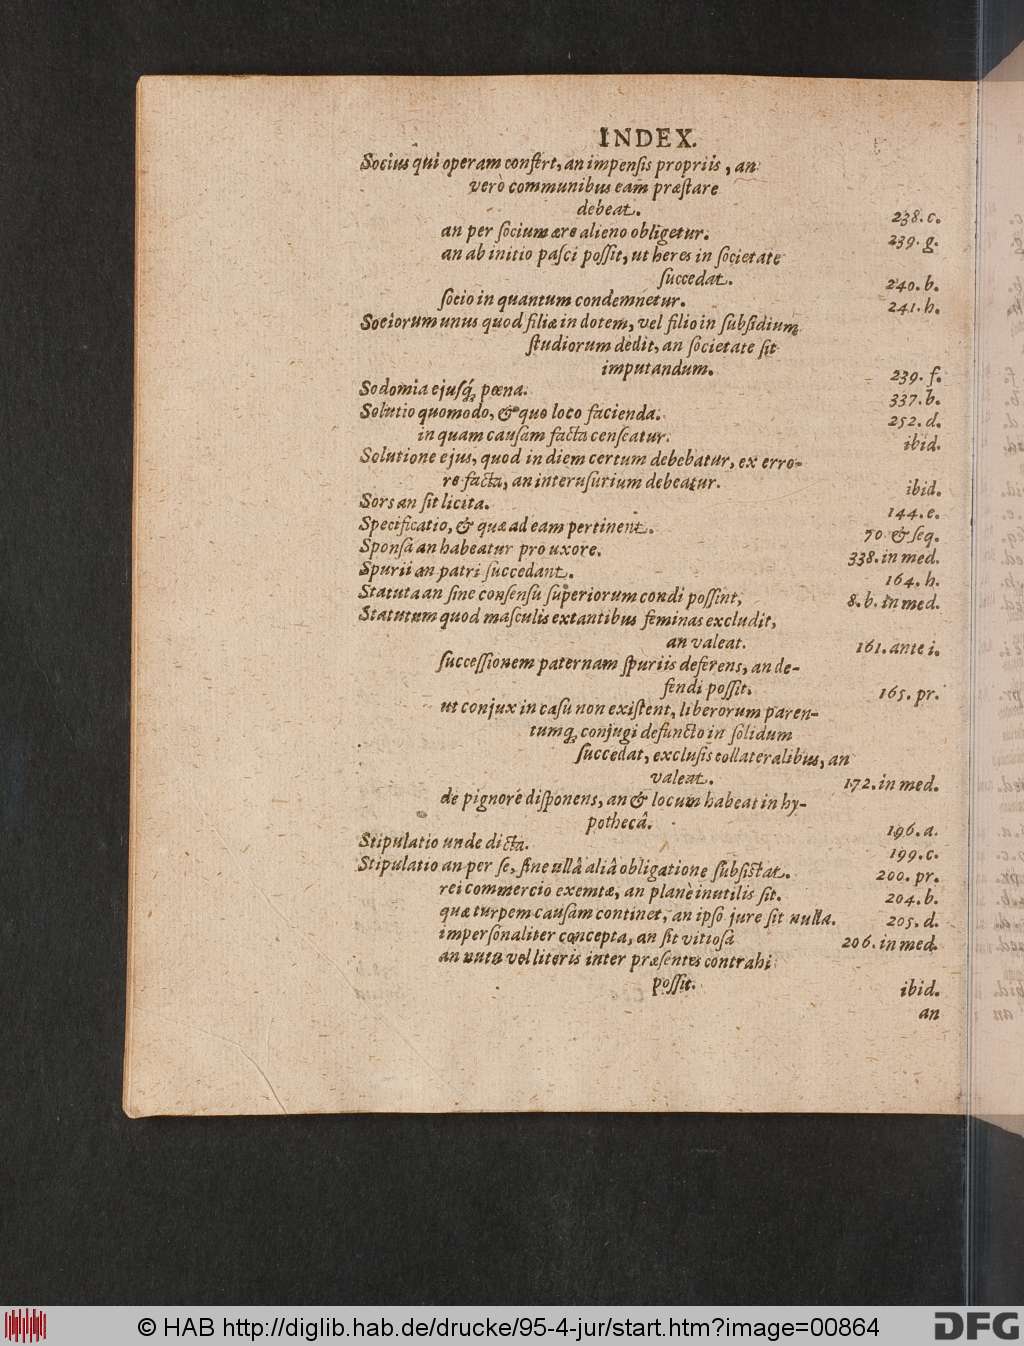 INDEX.
Socius qui operam confert, an impensis propriis, an
verò communibus eam præstare
debeat. 238. c.
an per socium ære alieno obligetur. 239. g.
an ab initio pasci possit, ut heres in societate
succedat. 240. b.
socio in quantum condemnetur. 241. h.
Sociorum unus quod filiæ in dotem, vel filio in subsidium
studiorum dedit, an societate sit
imputandum. 239. f.
Sodomia ejusq́; pœna. 337. b.
Solutio quomodo, & quo loco facienda. 252. d.
in quam causam facta censeatur. ibid.
Solutione ejus, quod in diem certum debebatur, ex erro-
re facta, an interusurium debeatur. ibid.
Sors an sit licita. 144. e.
Specificatio, & quæ ad eam pertinent. 70 & seq.
Sponsa an habeatur pro uxore. 338. in med.
Spurii an patri succedant. 164. h.
Statuta an sine consensu superiorum condi possint, 8. b. in med.
Statutum quod masculis extantibus feminas excludit,
an valeat. 161. ante i.
successionem paternam spuriis deferens, an de-
fendi possit. 165. pr.
ut conjux in casu non existent, liberorum paren-
tumq́; conjugi defuncto in solidum
succedat, exclusis collateralibus, an
valeat. 172. in med.
de pignore disponens, an & locum habeat in hy-
pothecâ. 196. a.
Stipulatio unde dicta. 199. c.
Stipulatio an per se, sine ullâ aliâ obligatione subsistat. 200. pr.
rei commercio exemtæ, an planè inutilis sit. 204. b.
quæ turpem causam continet, an ipso jure sit nulla. 205. d.
impersonaliter concepta, an sit vitiosa 206. in med.
an nutu vel literis inter præsentes contrahi
possit. ibid.
an
© HAB http://diglib.hab.de/drucke/95-4-jur/start.htm?image=00864
DFG